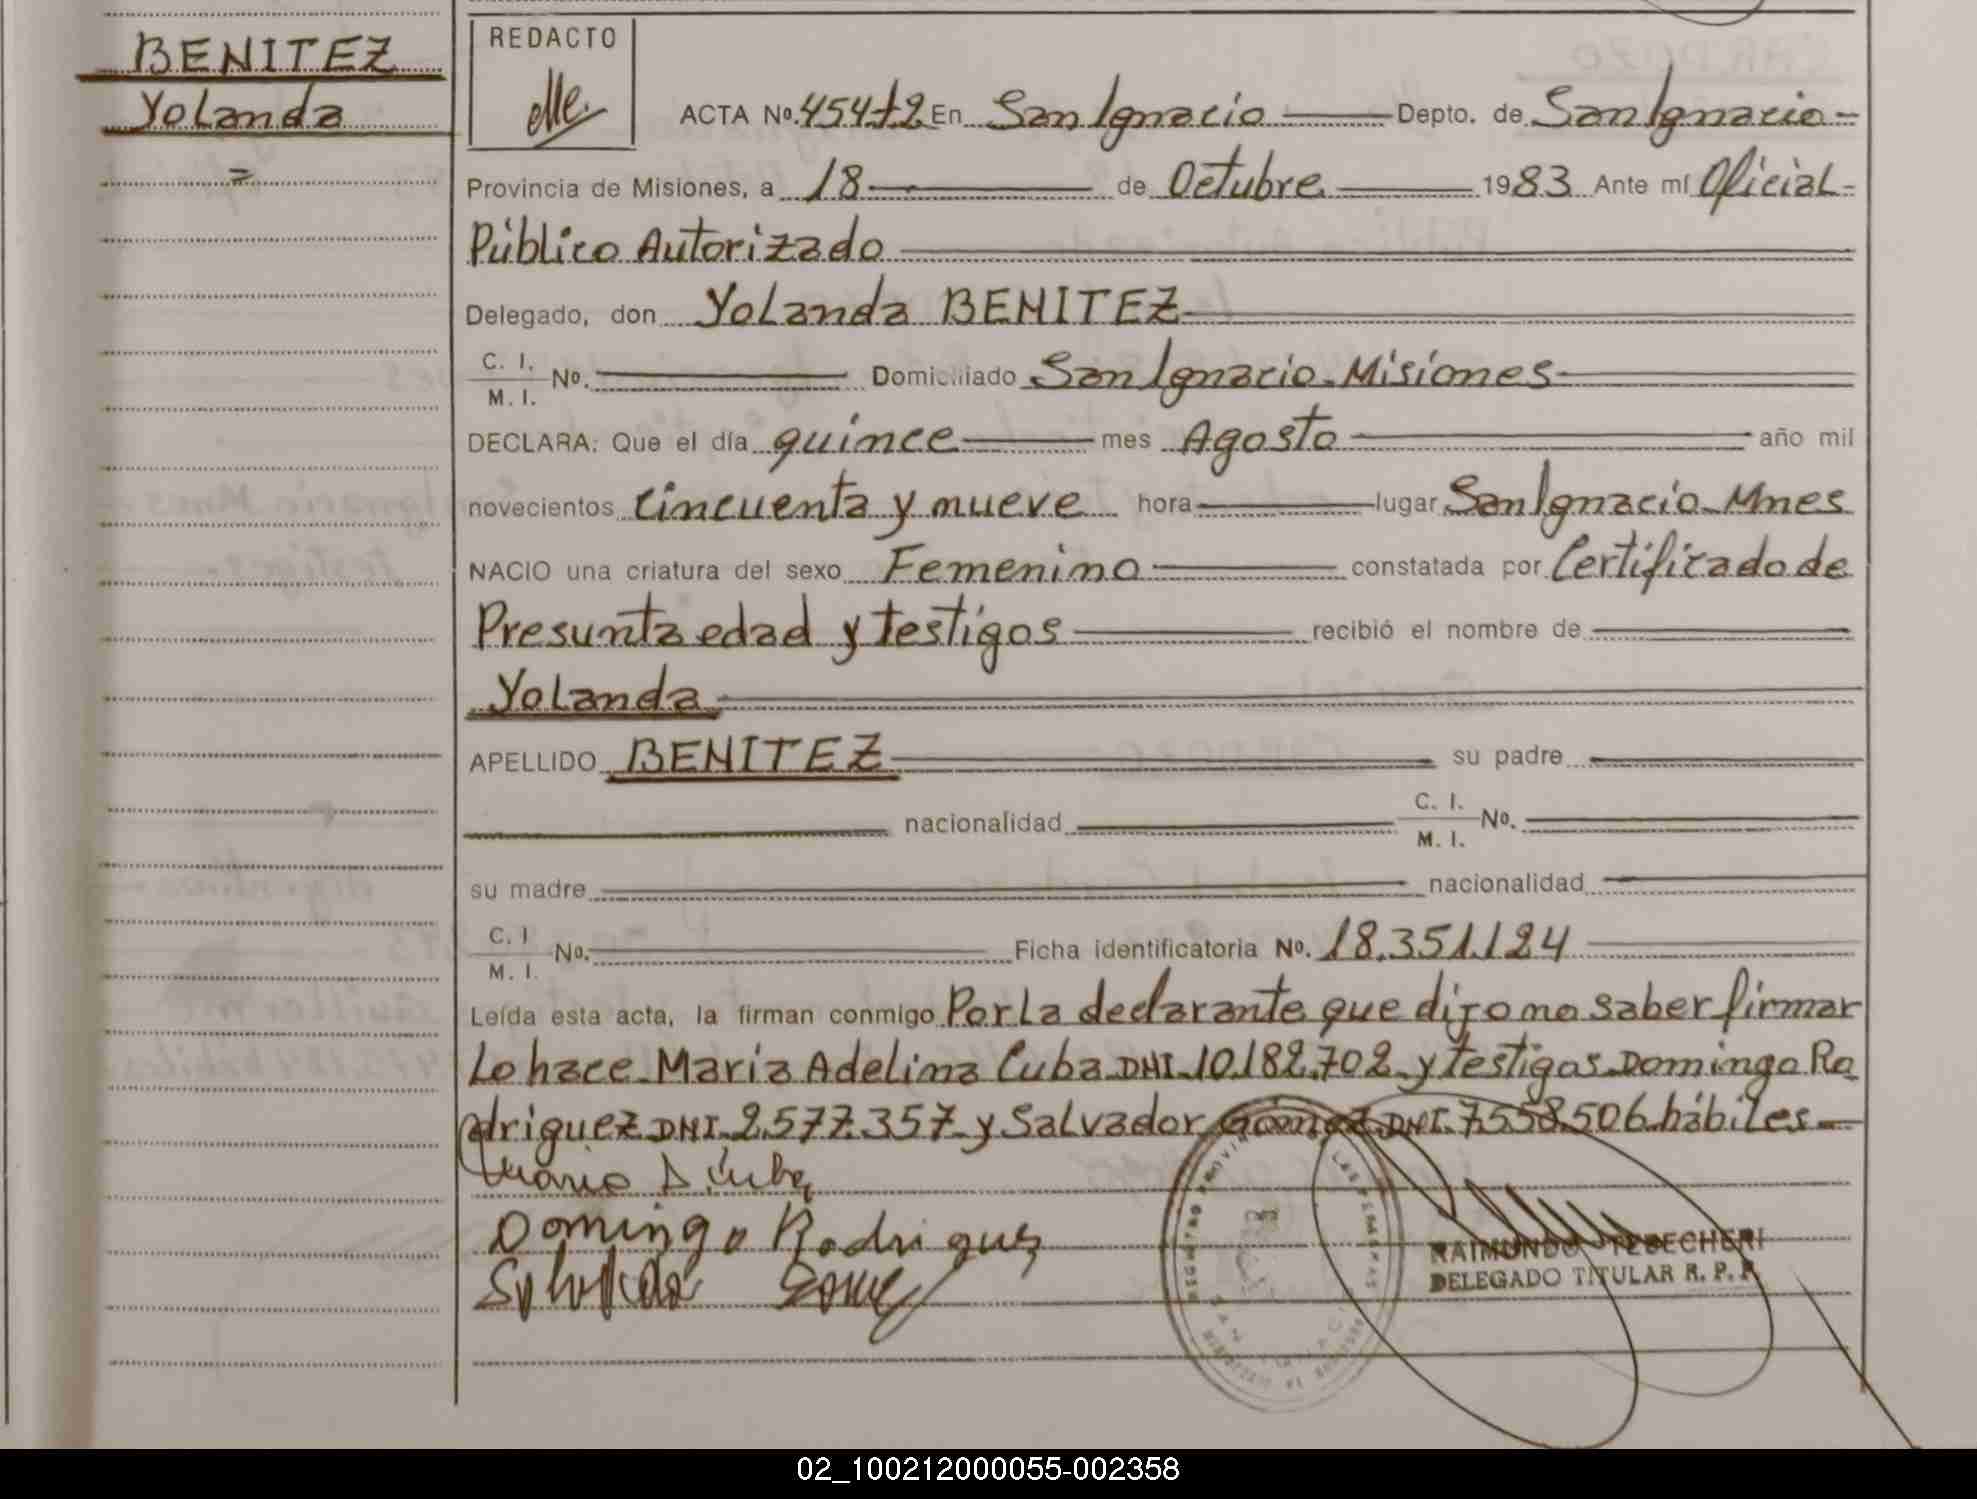 BENITEZ
Yolanda
=
REDACTO
ACTA Nº. 45472 En San Ignacio Depto. de San Ignacio
Provincia de Misiones, a 18 de Octubre 1983 Ante mí Oficial
Público Autorizado
Delegado, don Yolanda BENITEZ
C. I.
M. I. Nº. Domiciliado San Ignacio Misiones
DECLARA: Que el día quince mes Agosto año mil
novecientos cincuenta y nueve hora lugar San Ignacio Mnes
NACIO una criatura del sexo Femenino constatada por Certificado de
Presunta edad y testigos recibió el nombre de
Yolanda
APELLIDO BENITEZ su padre
nacionalidad C. I. M. I. Nº.
su madre nacionalidad
C. I M. I. Nº. Ficha identificatoria Nº. 18.351.124
Leída esta acta, la firman conmigo Por la declarante que dijo no saber firmar
Lo hace Maria Adelina Cuba DNI. 10.182.702 y testigos Domingo Ro
driguez DNI. 2.577.357 y Salvador Gomez DNI. 7.558.506 hábiles
Domingo Rodrigues
RAIMUNDO TEBECHERI
DELEGADO TITULAR R. P. P.
02_100212000055-002358